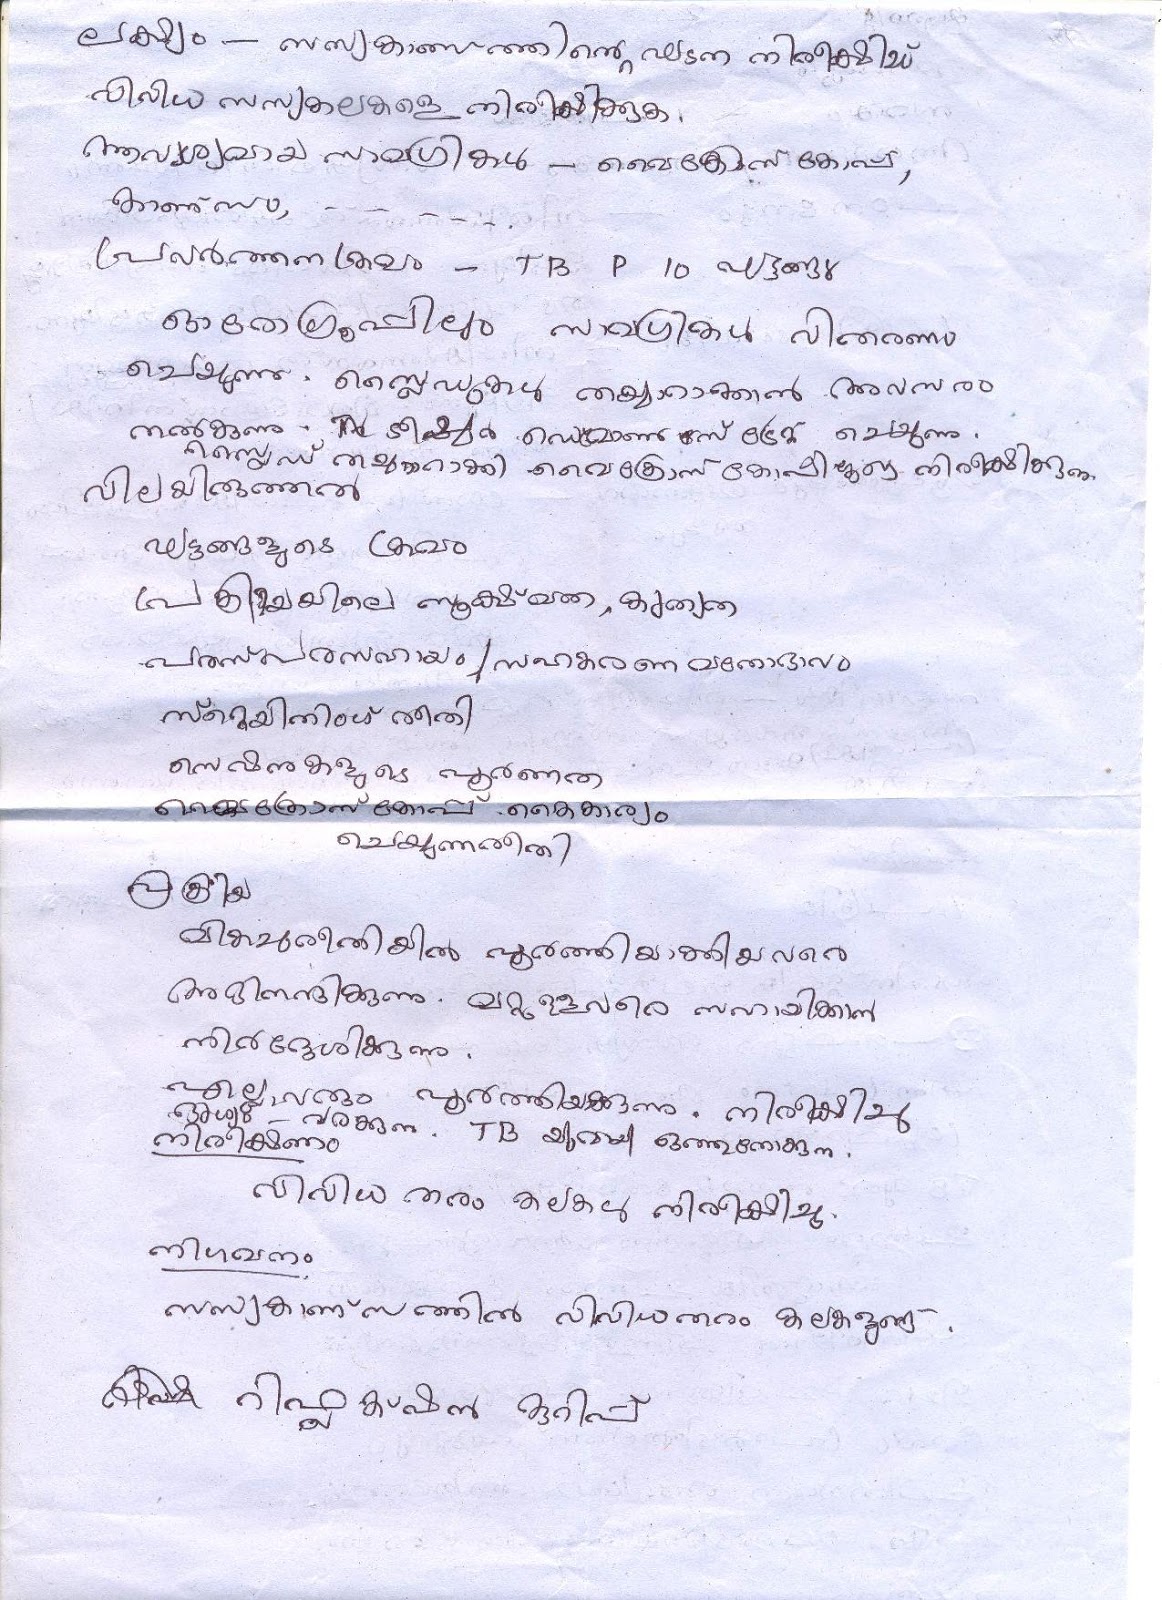 ലക്ഷ്യം – സസ്യകാണ്ഡത്തിന്റെ ഘടന നിരീക്ഷിച്ച്
വിവിധ സസ്യകലകളെ നിരീക്ഷിക്കുക.
ആവശ്യമായ സാമഗ്രികൾ – മൈക്രോസ്കോപ്പ്,
കാണ്ഡം, – – – – –.
പ്രവർത്തനക്രമം – TB P 10 ഘട്ടങ്ങൾ
ഓരോ ഗ്രൂപ്പിലും സാമഗ്രികൾ വിതരണം
ചെയ്യുന്നു. സ്ലൈഡുകൾ തയ്യാറാക്കാൻ അവസരം
നൽകുന്നു. ടീച്ചർ ചെയ്യുന്നു.
സ്ലൈഡ് തയ്യാറാക്കി മൈക്രോസ്കോപ്പിലൂടെ നിരീക്ഷിക്കുന്നു.
വിലയിരുത്തൽ
ഘട്ടങ്ങളുടെ ക്രമം
പ്രക്രിയയിലെ സൂക്ഷ്മത, കൃത്യത
പരസ്പരസഹായം/സഹകരണ മനോഭാവം
സ്റ്റെയിനിംഗ് രീതി
സെഷനുകളുടെ പൂർണത
മൈക്രോസ്കോപ്പ് കൈകാര്യം
ചെയ്യുന്നരീതി
പ്രക്രിയ
മികച്ചരീതിയിൽ പൂർത്തിയാക്കിയവരെ
അഭിനന്ദിക്കുന്നു. മറ്റുള്ളവരെ സഹായിക്കാൻ
നിർദ്ദേശിക്കുന്നു.
എല്ലാവരും പൂർത്തിയാക്കുന്നു. നിരീക്ഷിച്ചു
വരക്കുന്നു. TB യുമായി ഒത്തുനോക്കുന്നു.
നിരീക്ഷണം
വിവിധ തരം കലകൾ നിരീക്ഷിച്ചു.
നിഗമനം
സസ്യകാണ്ഡത്തിൽ വിവിധതരം കലകളുണ്ട്.
റിഫ്ലക്ഷൻ കുറിപ്പ്